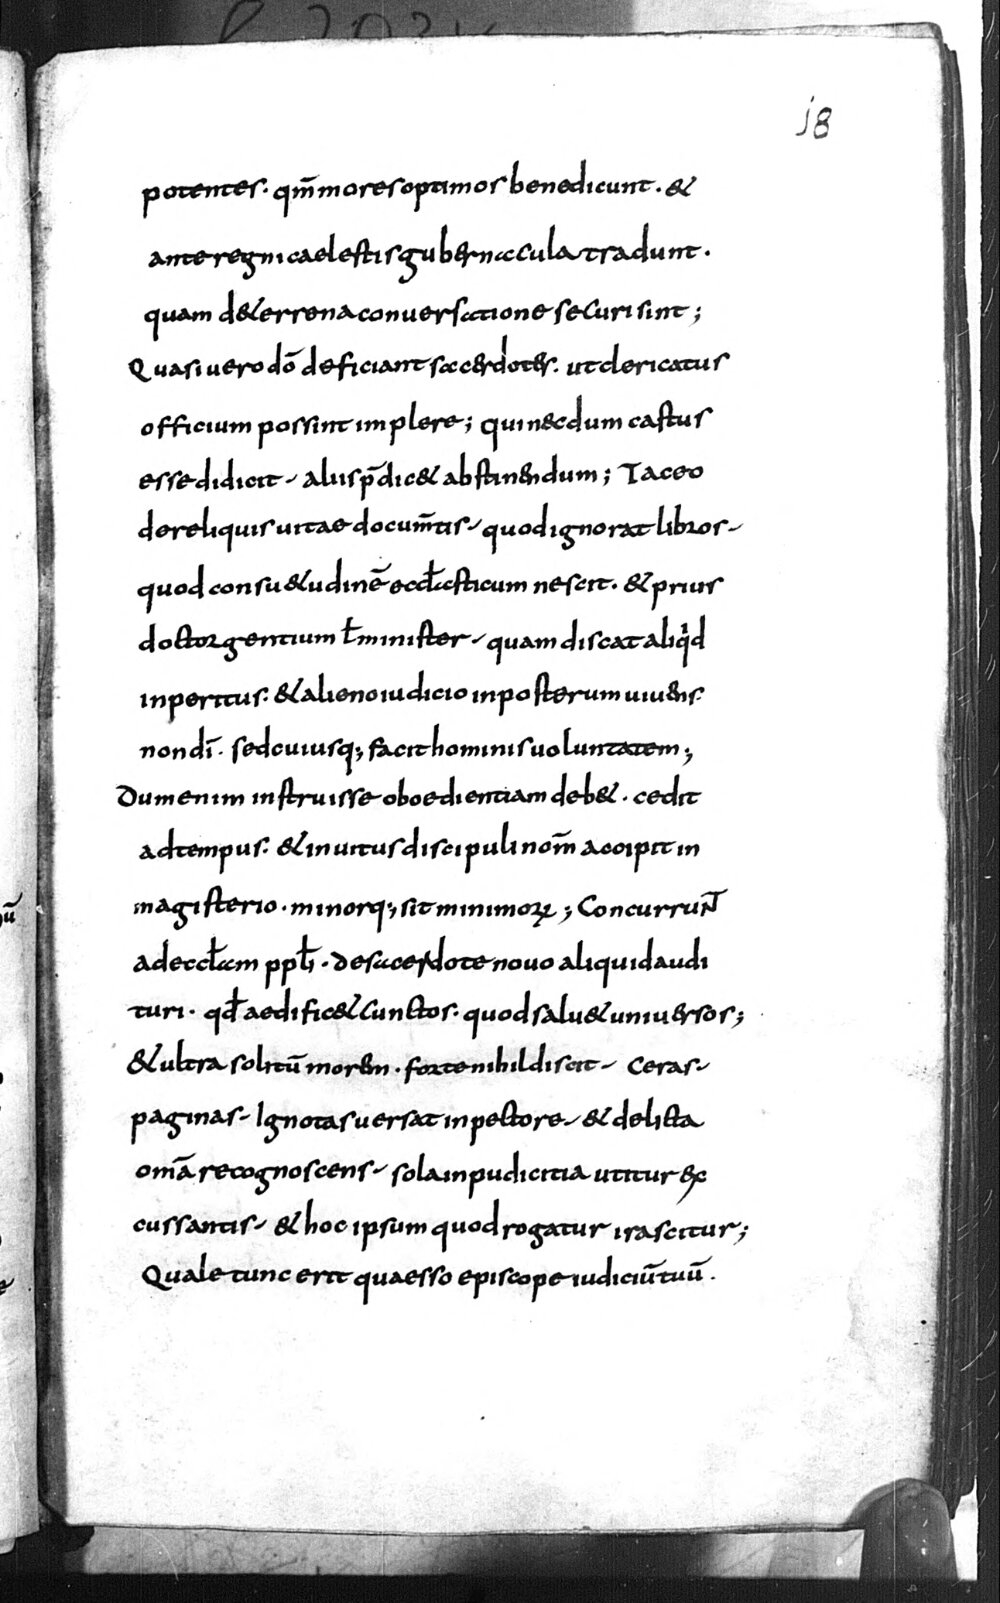 18
potentes. qm̄ mores optimos benedicunt. &
ante regni caelestis gubernacula tradunt.
quam de terrena conuersatione securi sint;
Quasi uero dō deficiant sacerdotes. ut clericatus
officium possint implere; qui necdum castus
esse didicit, aliis p̄dic& abstinendum; Taceo
de reliquis uitae docum̄tis, quod ignorat libros,
quod consu&udinē eccl̄asticum nescit. & prius
doctor gentium ł minister, quam discat aliqͥd
inperitus. & alieno iudicio inposterum uiuens.
non dī. sed cuiusq; facit hominis uoluntatem;
Dum enim instruisse oboedientiam deb&. cedit
ad tempus. & inuitus discipuli nom̄ accipit in
magisterio. minorq; sit minimoꝝ; Concurrun̄t
ad eccl̄am ppl̄i. de sacerdote nouo aliquid audi
turi. qd̄ aedific& cunctos. quod salu& uniuersos;
& ultra solitū morem. forte nihil discit, Ceras,
paginas, Ignotas uersat in pectore, & delicta
omā recognoscens, sola inpudicitia utitur ex
cussantis, & hoc ipsum quod rogatur irascitur;
Quale tunc erit quaesso episcope iudiciū tuū.